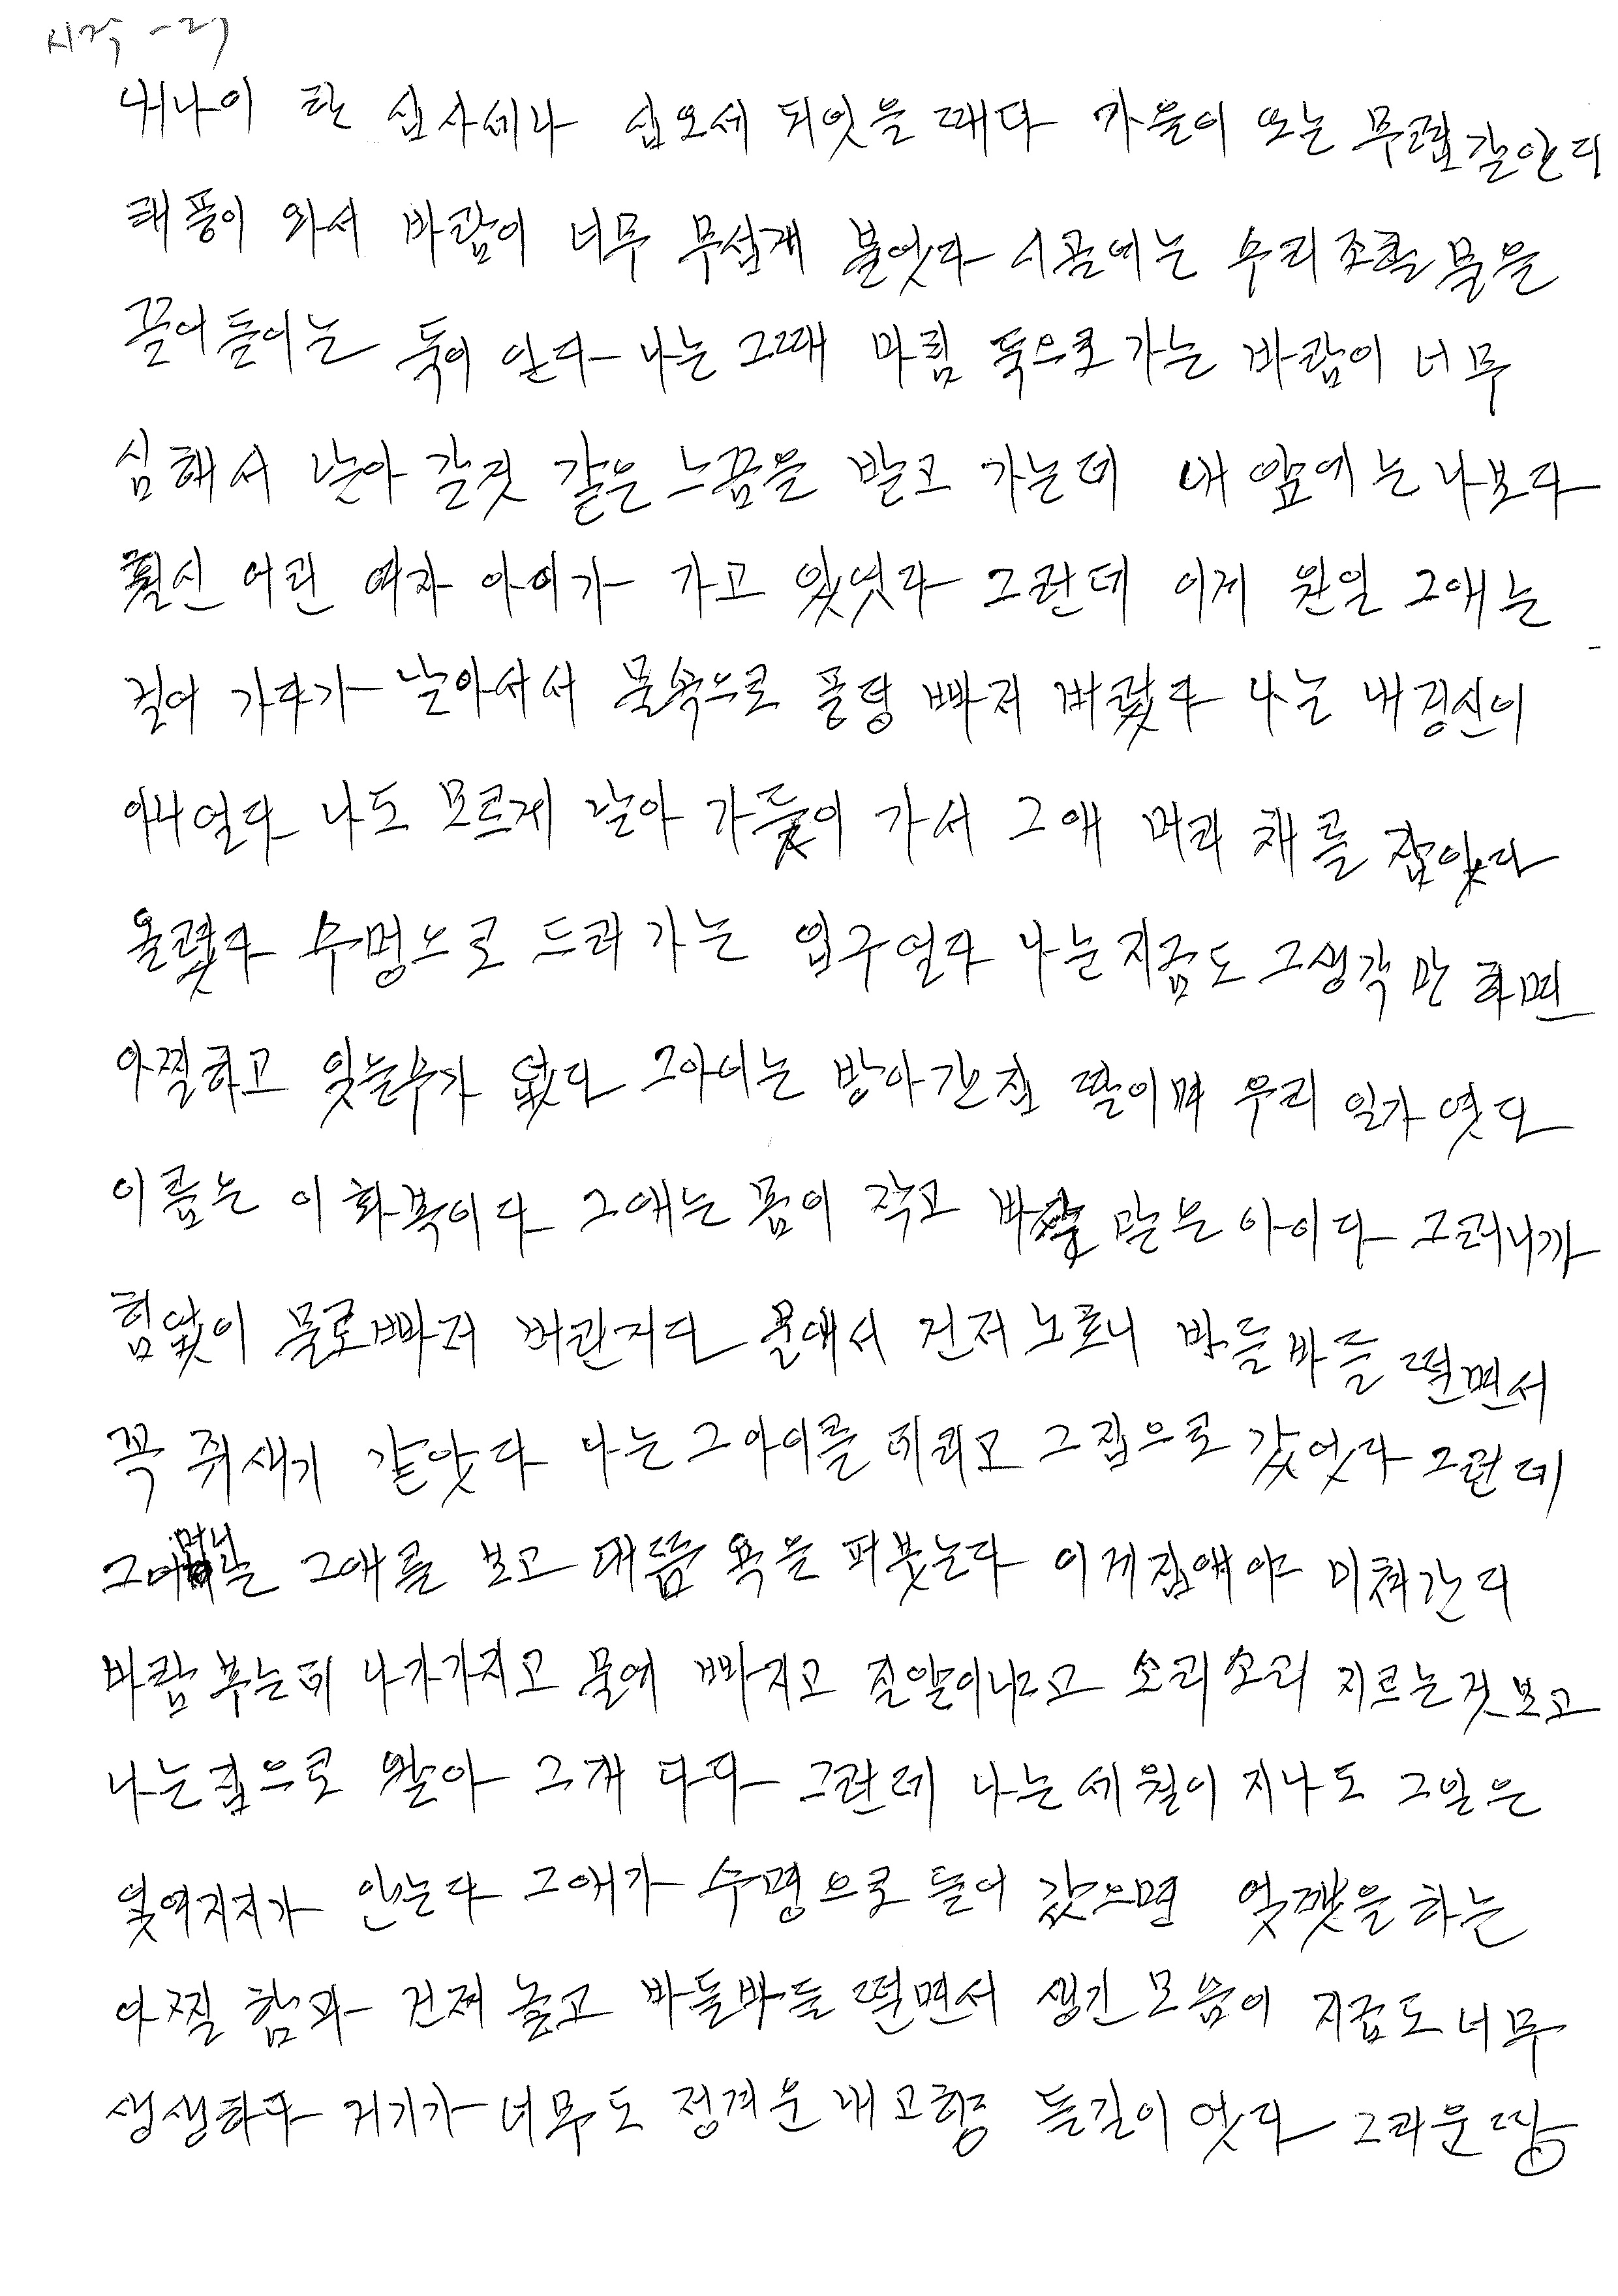 시작 - 27
내나이 한 십사세나 십오세 되엇을 때다 가을이 오는 무렵 같안다
태풍이 와서 바람이 너무 무섭게 불엇다 시골에는 수리조합 물을
끌어들이는 둑이 안다 나는 그때 마침 둑으로 가는 바람이 너무
심해서 날아 갈것 같은 느낌을 받고 가는데 내 앞에는 나보다
훨신 어린 여자 아이가 가고 있엇다 그런데 이게 왼일 그애는
걸어 가다가 날아서서 물속으로 풍덩 빠저 버렸다 나는 내정신이
아니엇다 나도 모르게 날아 가듯이 가서 그애 머리 채를 잡아
올렸다 수멍으로 드러 가는 입구엿다 나는 지금도 그생각만 하면
아찔하고 잊늘수가 없다 그아이는 방아간집 딸이며 우리 일가 엿다
이름는 이 화복이다 그애는 몸이 작고 바짝 말은 아이다 그러니까
힘없이 물로 빠저 버린거다 물애서 건저 노코니 바들바들 떨면서
꼭 쥐새기 같앗다 나는 그아이를 데리고 그집으로 갔엇다 그런데
그어머니는 그애를 보고 대뜸 욕을 퍼붓는다 이게집애야 미처간다
바람 부는데 나가가지고 물에 빠지고 질알이냐고 소리소리 지르는것 보고
나는 집으로 왔아 그게 다다 그런데 나는 세월이 지나도 그일은
잋어지지가 안는다 그애가 수멍으로 들어 갔으면 엇쨋을 하는
아찔 함과 건저 놓고 바들바들 떨면서 생긴 모습이 지금도 너무
생생하다 거기가 너무도 정겨운 내고향 들길이 엇다 그리운 땅